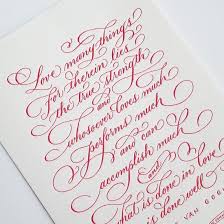 Love many things
For therein lies
the true strength
and
whosoever loves much
performs much
and can
accomplish much
and
what is done in love
is done well
VAN GOG